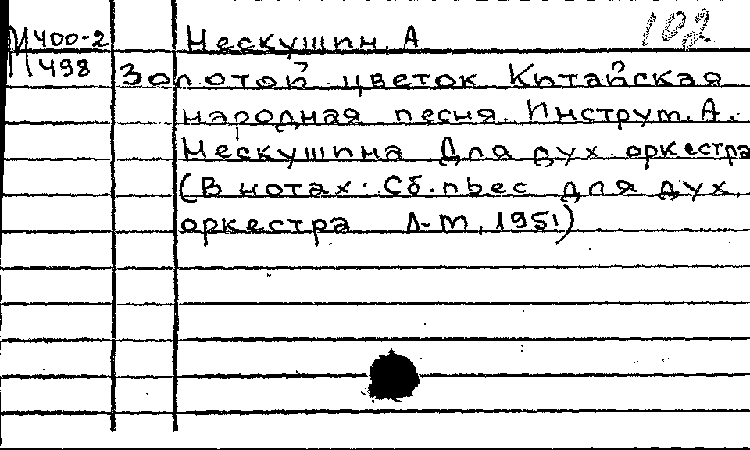 М 400-2 Нескушин. А 102
498 Золотой цветок Китайская
народная песня. Инструм. А.
Нескушина Для дух оркестра
(В нотах: Сб. пьес для дух.
оркестра Л-М, 1951)